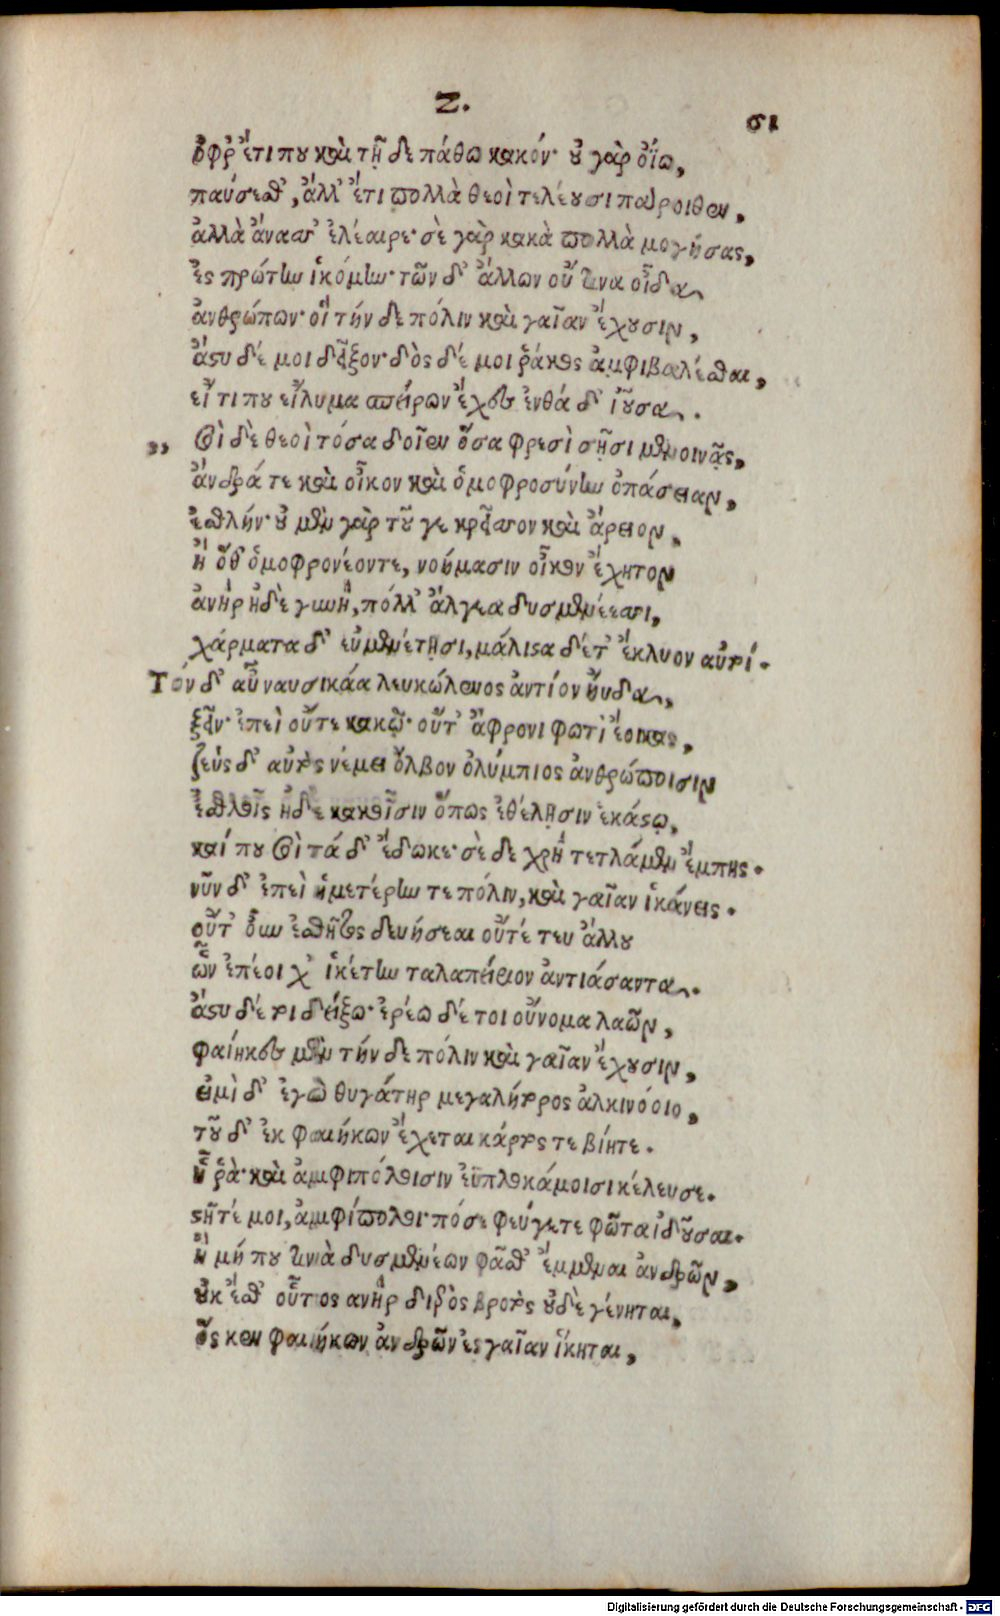 Ζ.
51
ὄφρ' ἔτι που καὶ τῇ δε πάθω κακόν· οὐ γὰρ ὀΐω,
παύσεσθ', ἀλλ' ἔτι πολλὰ θεοὶ τελέουσι πάροιθεν,
ἀλλὰ ἄνασσ' ἐλέαιρε· σὲ γὰρ κακὰ πολλὰ μογήσας,
ἐς πρώτην ἱκόμην· τῶν δ' ἄλλων οὔ τινα οἶδα
ἀνθρώπων· οἳ τήν δε πόλιν καὶ γαῖαν ἔχουσιν,
ἄστυ δέ μοι δεῖξον· δὸς δέ μοι ῥάκος ἀμφιβαλέσθαι,
εἴ τι που εἴλυμα σπείρων ἔχες ἐνθά δ' ἰοῦσα.
,, Σοὶ δὲ θεοὶ τόσα δοῖεν ὅσα φρεσὶ σῇσι μενοινᾷς,
ἄνδρά τε καὶ οἶκον καὶ ὁμοφροσύνην ὀπάσειαν,
ἐσθλήν· οὐ μὲν γὰρ τοῦ γε κρεῖσσον καὶ ἄρειον,
ἢ ὅθ' ὁμοφρονέοντε, νοήμασιν οἶκον ἔχητον
ἀνὴρ ἠδὲ γυνή, πόλλ' ἄλγεα δυσμενέεσσι,
χάρματα δ' εὐμενέτῃσι, μάλιστα δέ τ' ἔκλυον αὐτοί.
Τόν δ' αὖ ναυσικάα λευκώλενος ἀντίον ηὔδα,
ξεῖν· ἐπεὶ οὔτε κακῷ· οὔτ' ἄφρονι φωτὶ ἔοικας,
ζεὺς δ' αὐτὸς νέμει ὄλβον ὀλύμπιος ἀνθρώποισιν
ἐσθλοῖς ἠδὲ κακοῖσιν ὅπως ἐθέλησιν ἑκάστῳ,
καί που σοὶ τά δ' ἔδωκε· σὲ δε χρὴ τετλάμεν ἔμπης.
νῦν δ' ἐπεὶ ἡμετέρην τε πόλιν, καὶ γαῖαν ἱκάνεις.
οὔτ' οὖν ἐσθῆτος δευήσεαι οὔτέ τευ ἄλλου
ὧν ἐπέοιχ' ἱκέτην ταλαπείριον ἀντιάσαντα.
ἄστυ δέ τοι δείξω· ἐρέω δέ τοι οὔνομα λαῶν,
φαίηκες μὲν τήν δε πόλιν καὶ γαῖαν ἔχουσιν,
εἰμὶ δ' ἐγὼ θυγάτηρ μεγαλήτορος ἀλκινόοιο,
τοῦ δ' ἐκ φαιήκων ἔχεται κάρτός τε βίητε.
ἦ ῥὰ· καὶ ἀμφιπόλοισιν ἐϋπλοκάμοισι κέλευσε.
στῆτέ μοι, ἀμφίπολοι· πόσε φεύγετε φῶτα ἰδοῦσαι.
ἦ μή που τινὰ δυσμενέων φᾶσθ' ἔμμεναι ἀνδρῶν,
οὐκ ἔσθ' οὗτος ανὴρ διερὸς βροτὸς οὐδὲ γένηται,
ὅς κεν φαιήκων ἀνδρῶν ἐς γαῖαν ἵκηται,
Digitalisierung gefördert durch die Deutsche Forschungsgemeinschaft - DFG